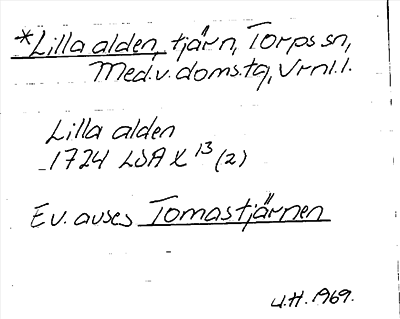 *Lilla alden, tjärn, Torps sn,
Med.v. doms.tg, Vrml.l.
Lilla alden
1724 LSA X 13 (2)
Ev. avses Tomastjärnen
U.H. 1969.